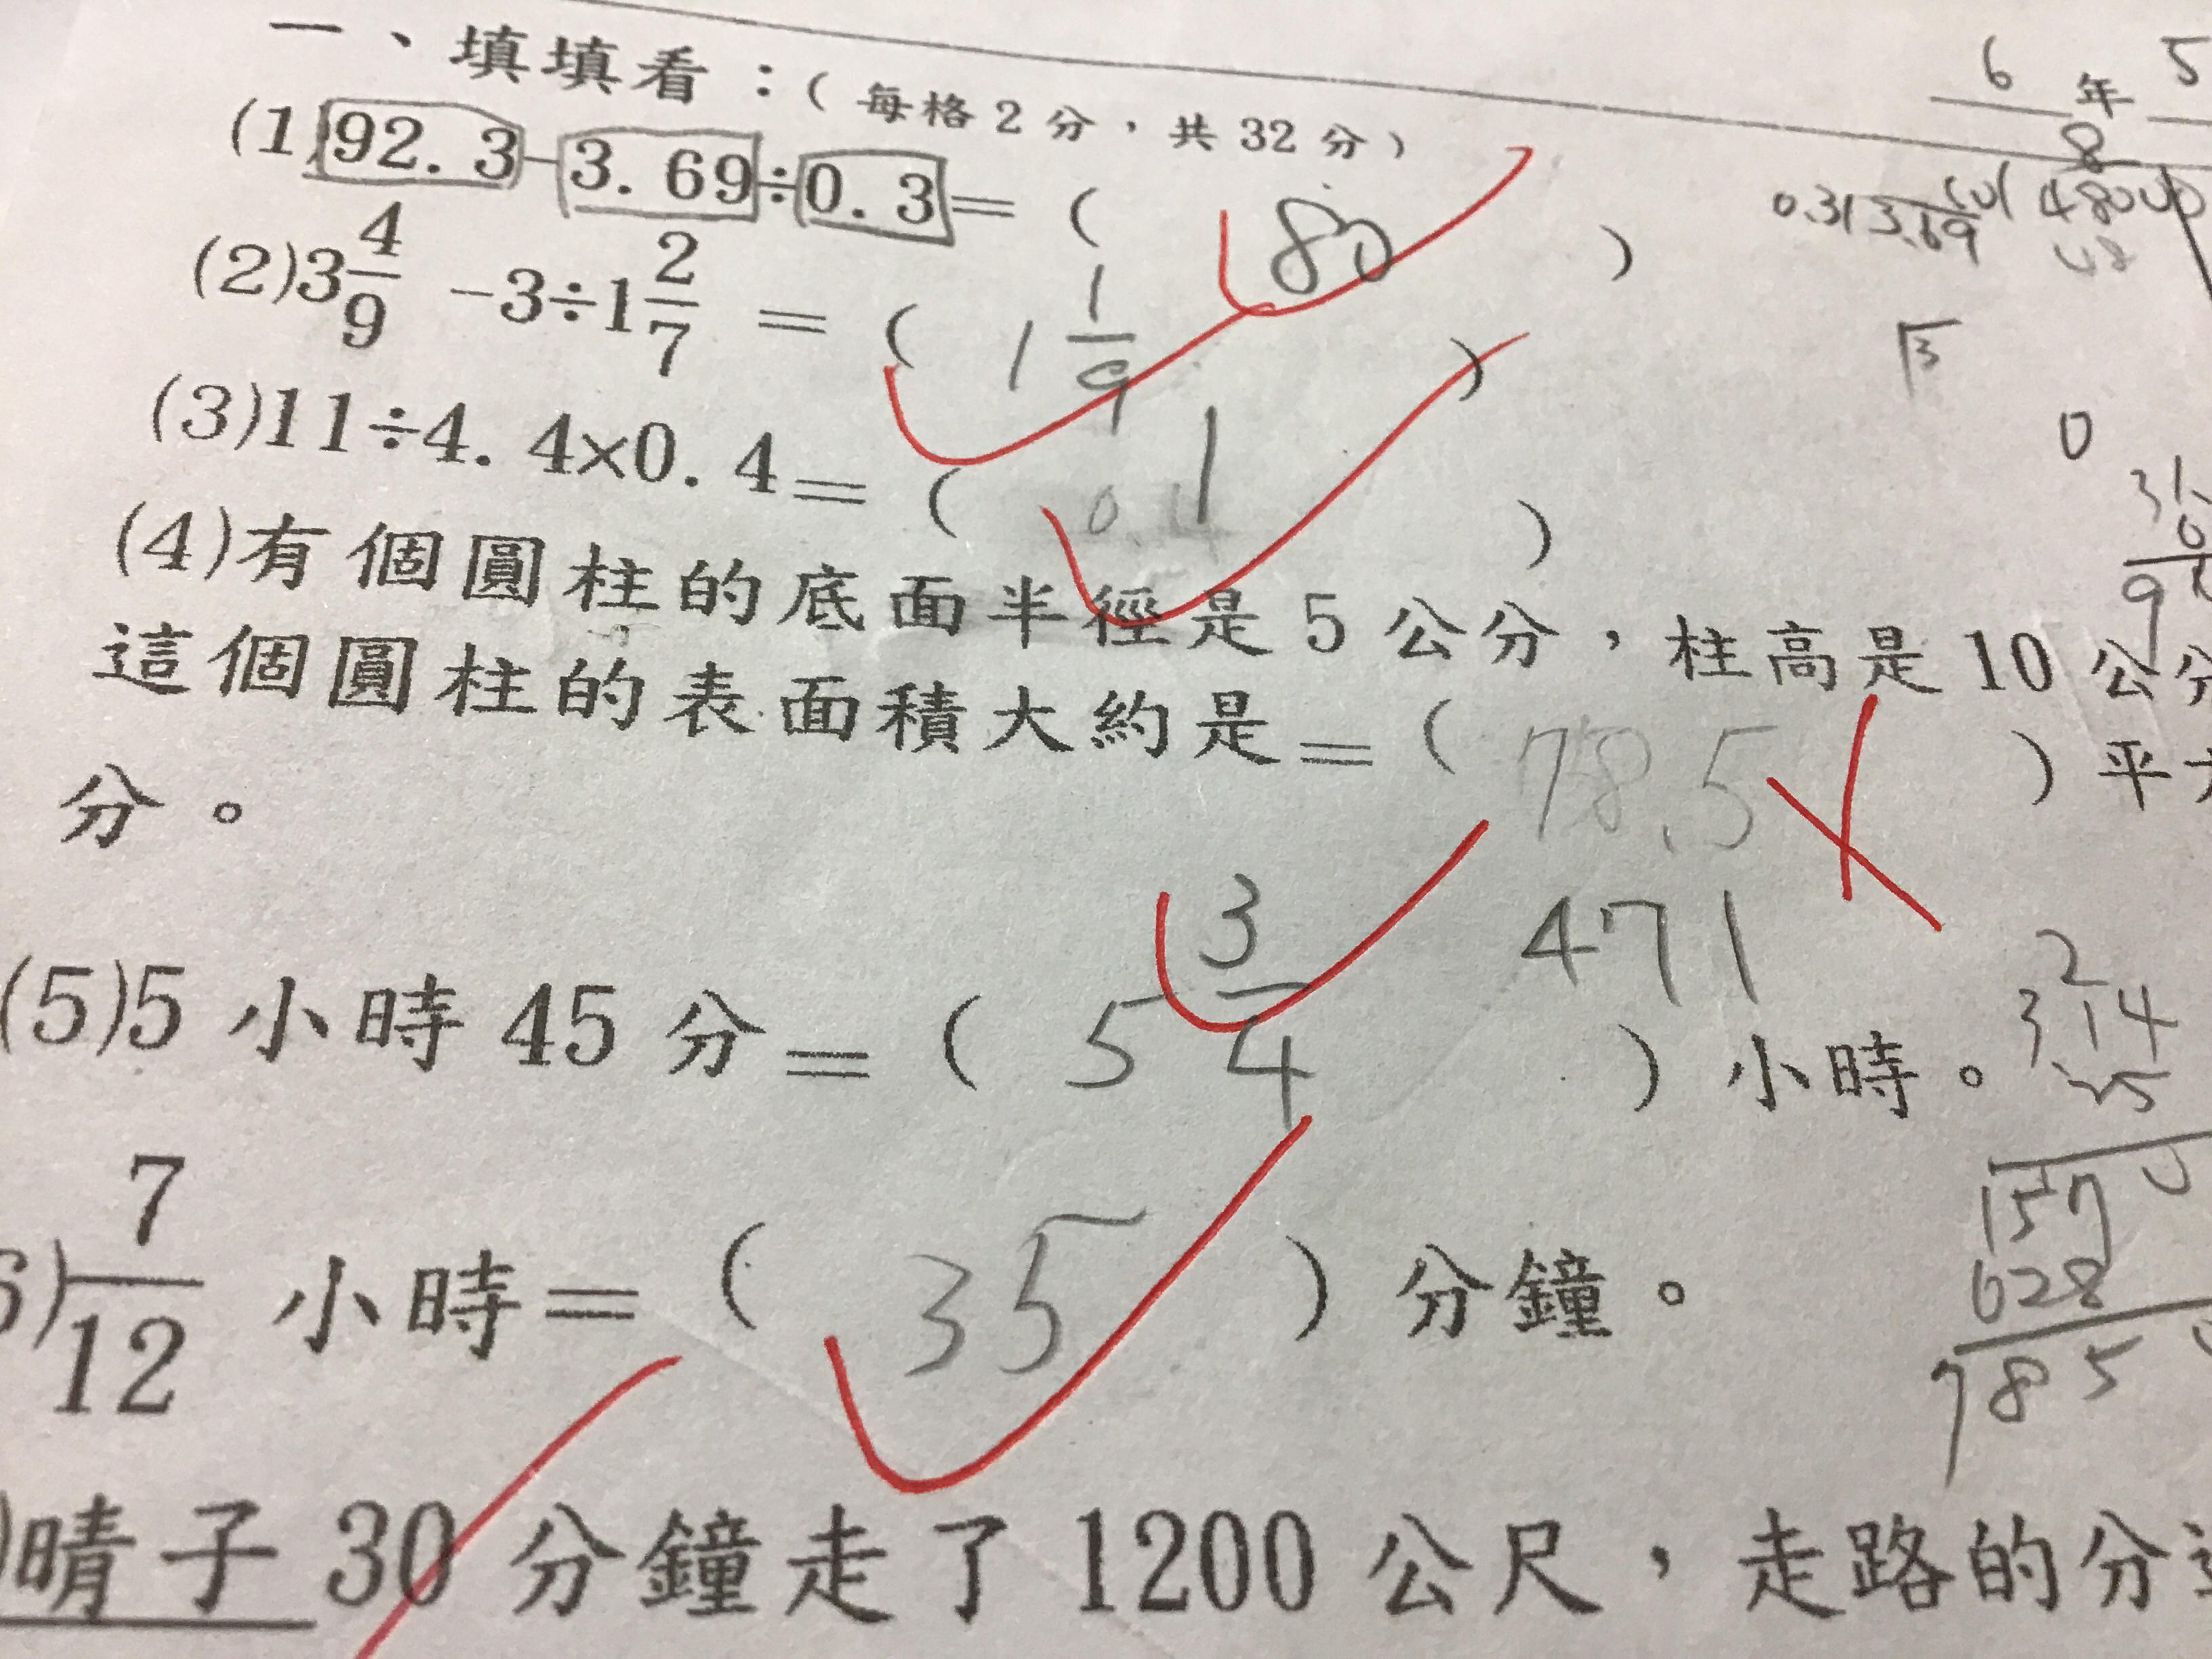 一、填填看：(每格2分，共32分)
6年5
(1)92.3-3.69÷0.3=( 80 )
(2)3 4/9 -3÷1 2/7 =( 1 1/9 )
(3)11÷4.4×0.4=( 1 )
(4)有個圓柱的底面半徑是5公分，柱高是10公分
這個圓柱的表面積大約是=( 78.5 )平
分。
471
(5)5小時45分=( 5 3/4 )小時。
6) 7/12 小時=( 35 )分鐘。
)晴子30分鐘走了1200公尺，走路的分
0.3
3.69
8
3
0
3.14
25
1570
628
785